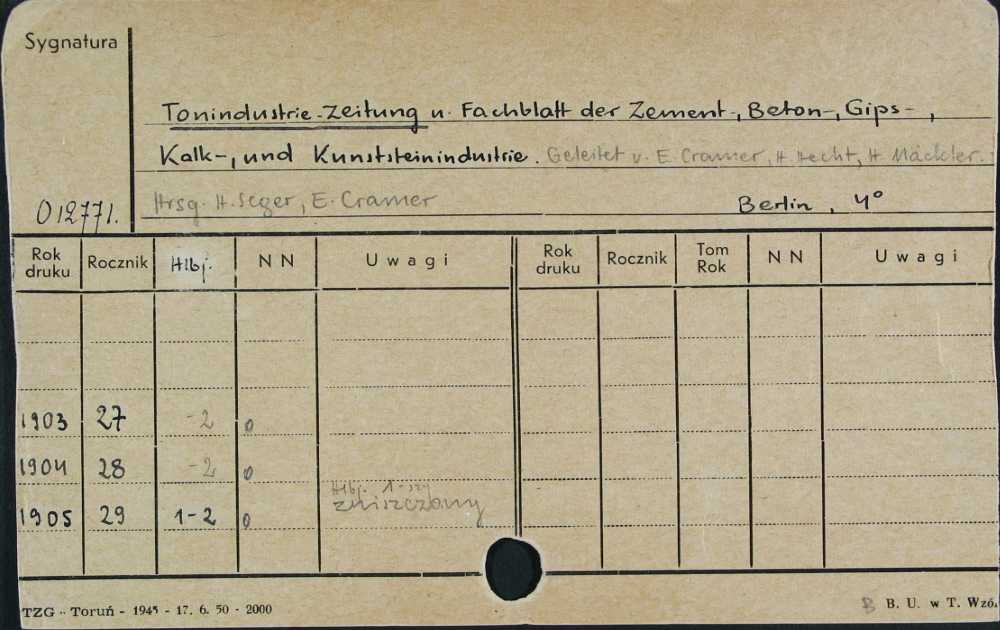 Sygnatura
Tonindustrie-Zeitung u. Fachblatt der Zement-, Beton-, Gips-,
Kalk-, und Kunststeinindustrie. Geleitet v. E. Cramer, H. Hecht, H. Mäckler.
Hrsg. H. Seger, E. Cramer Berlin, 4°
012771.
Rok druku Rocznik Hlbj. NN Uwagi Rok druku Rocznik Tom Rok NN Uwagi
1903 27 -2 0
1904 28 -2 0
Hlbj. 1-szy
1905 29 1-2 0 zniszczony
TZG - Toruń - 1945 - 17. 6. 50 - 2000 B B. U. w T. Wzó.